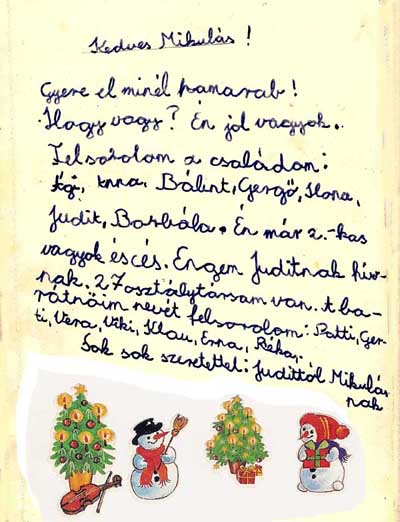 Kedves Mikulás!
Gyere el minél hamarab!
Hogy vagy? Én jól vagyok.
Felsorolom a családom:
Ági, Anna, Bálint, Gergő, Ilona,
Judit, Borbála. Én már 2.-kas
vagyok éscés. Engem Juditnak hív-
nak. 27 osztálytársam van. A ba-
rátnőim nevét felsorolom: Patti, Ger-
ti, Vera, Viki, Klau, Erna, Réka,.
Sok sok szeretettel: Judittól Mikulás
nak